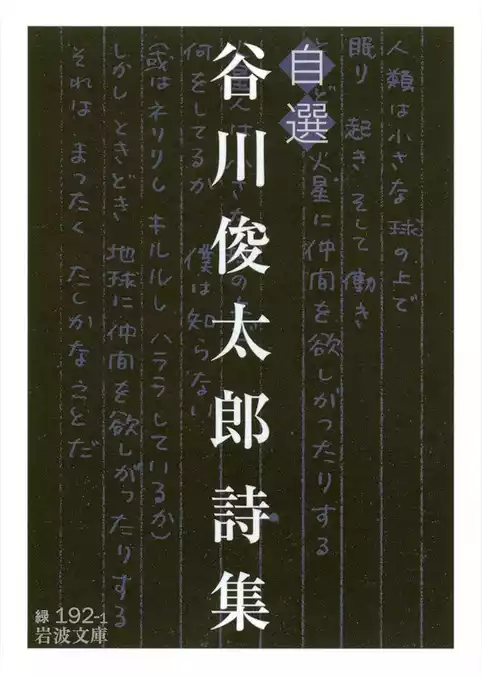 自選
谷川俊太郎詩集
人類は小さな球の上で
眠り 起き そして 働き
ときどき火星に仲間を欲しがったりする
火星人は小さな球の上で
何をしてるか 僕は知らない
(或はネリリし キルルし ハララしているか)
しかし ときどき 地球に仲間を欲しがったりする
それは まったく たしかなことだ
緑 192-1
岩波文庫